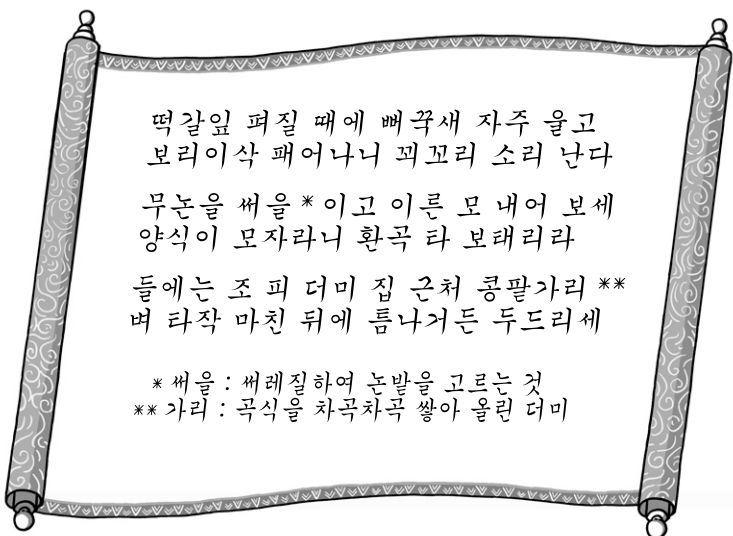 떡갈잎 펴질 때에 뻐꾹새 자주 울고
보리이삭 패어나니 꾀꼬리 소리 난다
무논을 써을 * 이고 이른 모 내어 보세
양식이 모자라니 환곡 타 보태리라
들에는 조 피 더미 집 근처 콩팥가리 **
벼 타작 마친 뒤에 틈나거든 두드리세
* 써을 : 써레질하여 논밭을 고르는 것
** 가리 : 곡식을 차곡차곡 쌓아 올린 더미